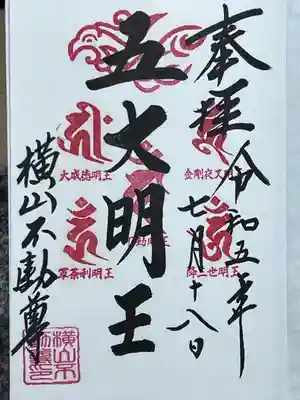 奉拝
令和五年
七月十八日
五大明王
金剛夜叉明王
大威徳明王
降三世明王
軍荼利明王
横山不動尊